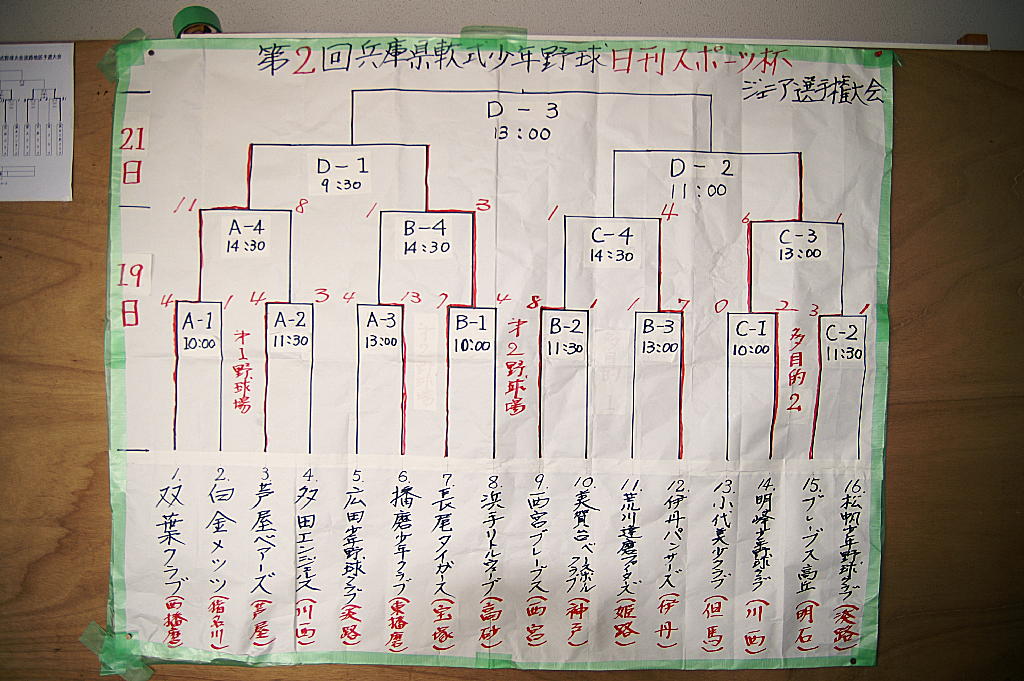 第2回兵庫県軟式少年野球日刊スポーツ杯
ジュニア選手権大会
21日
19日
D-3
13:00
D-1
9:30
D-2
11:00
11
8
1
3
1
4
6
1
A-4
14:30
B-4
14:30
C-4
14:30
C-3
13:00
4
1
4
3
4
13
7
4
8
1
1
7
0
2
3
1
A-1
10:00
A-2
11:30
A-3
13:00
B-1
10:00
B-2
11:30
B-3
13:00
C-1
10:00
C-2
11:30
才1野球場
才2野球場
多目的2
1. 双葉クラブ(西播磨)
2. 白金メッツ(猪名川)
3. 芦屋ベアーズ(芦屋)
4. 多田エンジェルス(川西)
5. 広田少年野球クラブ(淡路)
6. 播磨少年クラブ(東播磨)
7. 長尾タイガース(宝塚)
8. 浜手リトルウェーブ(高砂)
9. 西宮ブレーブス(西宮)
10. 美賀台ベースボールクラブ(神戸)
11. 荒川達磨ファイターズ(姫路)
12. 伊丹パンサーズ(伊丹)
13. 小代美少クラブ(但馬)
14. 明峰少年野球クラブ(川西)
15. ブレーブス高丘(明石)
16. 松帆少年野球クラブ(淡路)